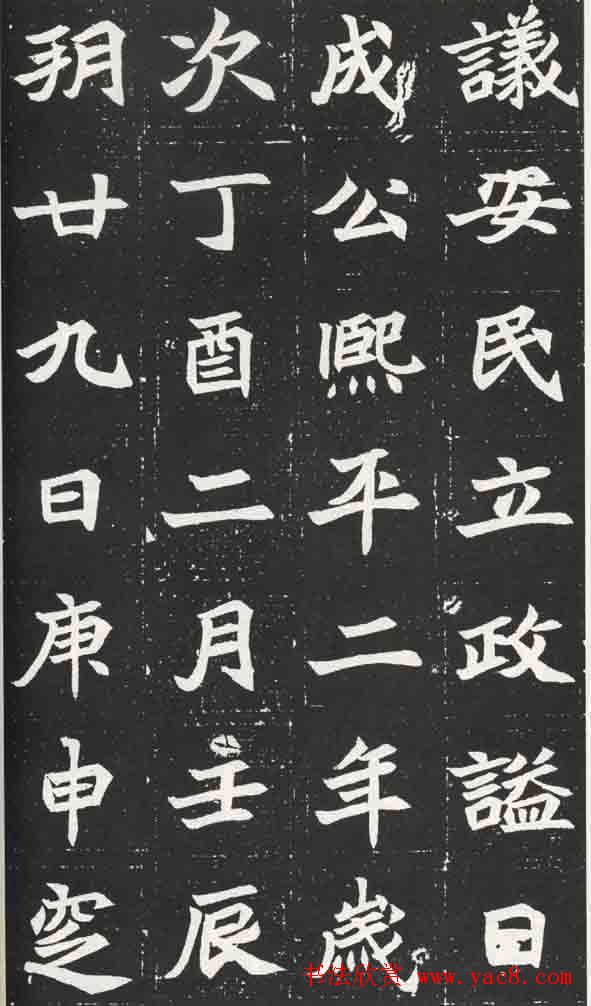 議安民立政謚曰
成公熙平二年歲
次丁酉二月壬辰
朔廿九日庚申窆
书法欣赏 www.yac8.com